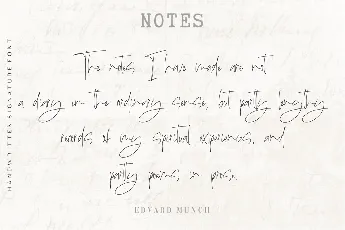 NOTES
The notes I have made are not
a diary in the ordinary sense, but partly lengthy
records of my spiritual experiences, and
partly poems in prose.
EDVARD MUNCH
HANDWRITTEN SIGNATURE FONT